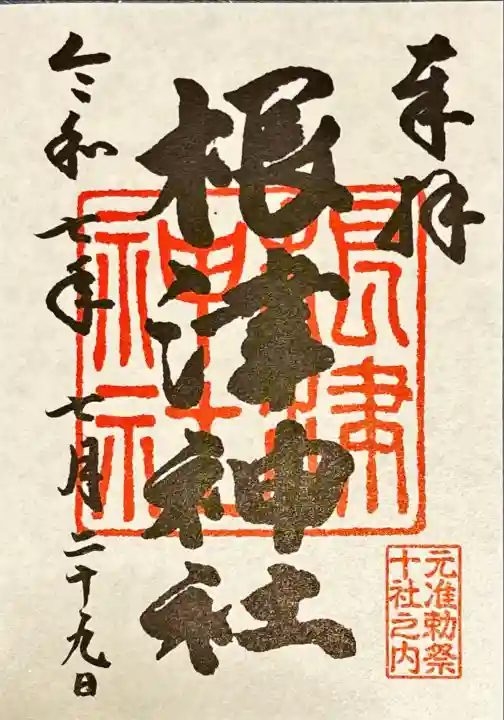 奉拝
根津神社
根津神社
令和七年七月二十九日
元准勅祭
十社之内